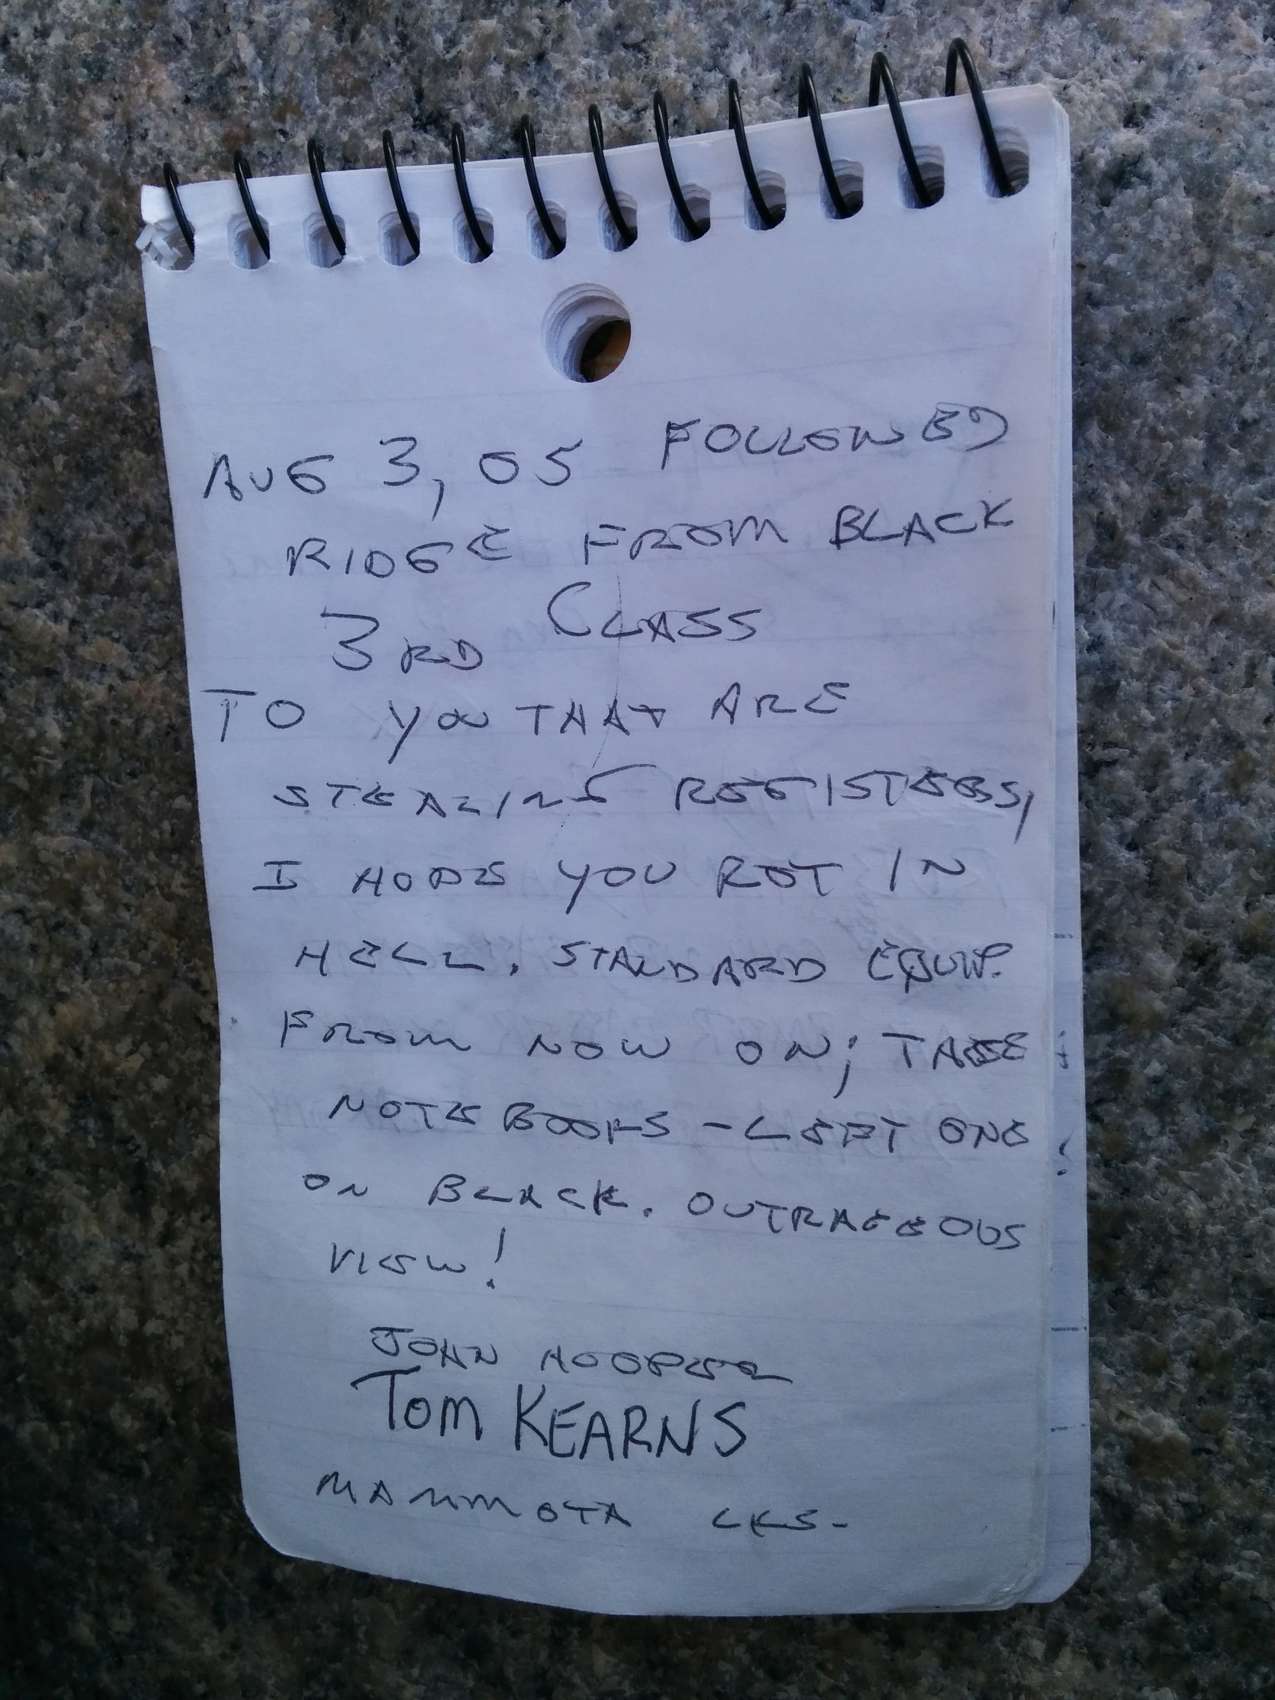 AUG 3, 05 FOLLOWED
RIDGE FROM BLACK
3RD CLASS
TO YOU THAT ARE
STEALING REGISTERS,
I HOPE YOU ROT IN
HELL. STANDARD EQUIP.
FROM NOW ON; TAKE
NOTEBOOKS - LEFT ONE
ON BLACK. OUTRAGEOUS
VIEW!
JOHN HOOPER
TOM KEARNS
MAMMOTH LKS.